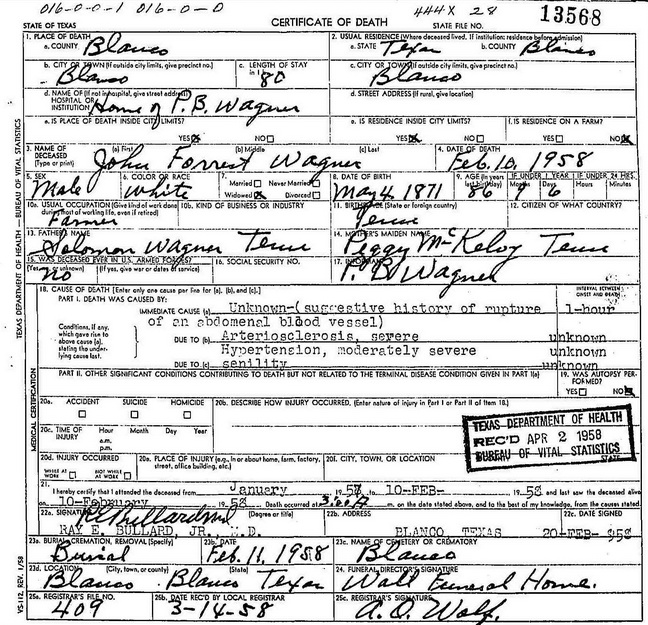 016-0-0-1 016-0-0 444X 28 13568
STATE OF TEXAS CERTIFICATE OF DEATH STATE FILE NO.
1. PLACE OF DEATH 2. USUAL RESIDENCE (Where deceased lived. If institution: residence before admission)
a. COUNTY Blanco a. STATE Texas b. COUNTY Blanco
b. CITY OR TOWN (If outside city limits, give precinct no.) c. LENGTH OF STAY c. CITY OR TOWN (If outside city limits, give precinct no.)
Blanco 80 Blanco
d. NAME OF (If not in hospital, give street address) d. STREET ADDRESS (If rural, give location)
HOSPITAL OR INSTITUTION Home of P. B. Wagner
e. IS PLACE OF DEATH INSIDE CITY LIMITS? e. IS RESIDENCE INSIDE CITY LIMITS? f. IS RESIDENCE ON A FARM?
YES NO YES NO YES NO
3. NAME OF DECEASED (Type or print) (a) First (b) Middle (c) Last 4. DATE OF DEATH
John Forrest Wagner Feb. 10, 1958
5. SEX 6. COLOR OR RACE 7. Married Never Married Widowed Divorced 8. DATE OF BIRTH 9. AGE (In years last birthday) IF UNDER 1 YEAR IF UNDER 24 HRS. Months Days Hours Minutes
Male White May 4, 1871 86 9 6
10a. USUAL OCCUPATION (Give kind of work done during most of working life, even if retired) 10b. KIND OF BUSINESS OR INDUSTRY 11. BIRTHPLACE (State or foreign country) 12. CITIZEN OF WHAT COUNTRY?
Farmer Tenn
13. FATHER'S NAME 14. MOTHER'S MAIDEN NAME
Solomon Wagner Tenn Peggy McKelvy Tenn
15. WAS DECEASED EVER IN U.S. ARMED FORCES? 16. SOCIAL SECURITY NO. 17. INFORMANT
(Yes, no, or unknown) (If yes, give war or dates of service)
no P. B. Wagner
18. CAUSE OF DEATH [Enter only one cause per line for (a), (b), and (c).] INTERVAL BETWEEN ONSET AND DEATH
PART I. DEATH WAS CAUSED BY:
IMMEDIATE CAUSE (a) Unknown-(suggestive history of rupture 1-hour
of an abdomenal blood vessel)
Conditions, if any, which gave rise to above cause (a), stating the underlying cause last.
DUE TO (b) Arteriosclerosis, severe unknown
Hypertension, moderately severe unknown
DUE TO (c) senility unknown
PART II. OTHER SIGNIFICANT CONDITIONS CONTRIBUTING TO DEATH BUT NOT RELATED TO THE TERMINAL DISEASE CONDITION GIVEN IN PART I(a) 19. WAS AUTOPSY PERFORMED?
YES NO
20a. ACCIDENT SUICIDE HOMICIDE 20b. DESCRIBE HOW INJURY OCCURRED. (Enter nature of injury in Part I or Part II of Item 18.)
20c. TIME OF INJURY Hour a.m. p.m. Month Day Year
TEXAS DEPARTMENT OF HEALTH
REC'D APR 2 1958
BUREAU OF VITAL STATISTICS
20d. INJURY OCCURRED WHILE AT WORK NOT WHILE AT WORK 20e. PLACE OF INJURY (e.g., in or about home, farm, factory, street, office building, etc.) 20f. CITY, TOWN, OR LOCATION STATE
21. I hereby certify that I attended the deceased from January 1958, to 10-FEB- 1958 and last saw the deceased alive
on 10-February 1958 Death occurred at m. on the date stated above, and to the best of my knowledge, from the causes stated.
22a. SIGNATURE (Degree or title) 22b. ADDRESS 22c. DATE SIGNED
RAY E. BULLARD, JR. M.D. BLANCO TEXAS 20-FEB-958
23a. BURIAL, CREMATION, REMOVAL (Specify) 23b. DATE 23c. NAME OF CEMETERY OR CREMATORY
Burial Feb. 11, 1958 Blanco
23d. LOCATION (City, town, or county) (State) 24. FUNERAL DIRECTOR'S SIGNATURE
Blanco Blanco Texas Funeral Home.
25a. REGISTRAR'S FILE NO. 25b. DATE REC'D BY LOCAL REGISTRAR 25c. REGISTRAR'S SIGNATURE
409 3-14-58
TEXAS DEPARTMENT OF HEALTH — BUREAU OF VITAL STATISTICS
MEDICAL CERTIFICATION
VS-112, REV. 1/58